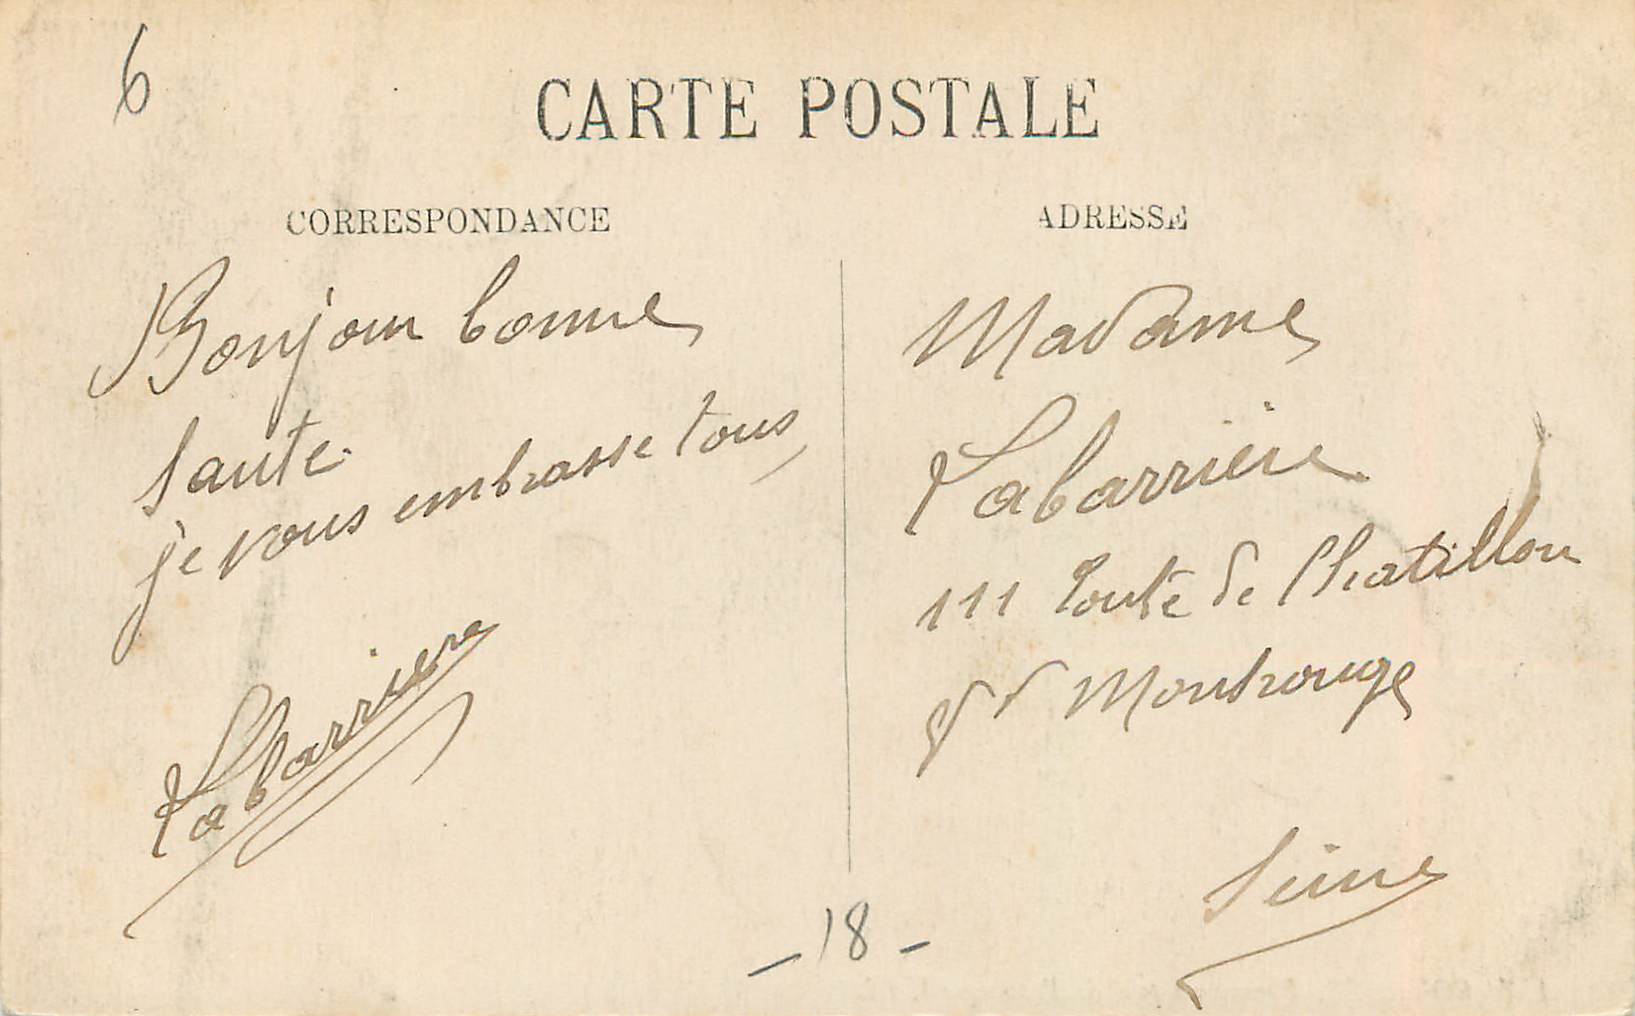 6
CARTE POSTALE
CORRESPONDANCE
Bonjour bonne
Santé
je vous embrasse tous
Labarriere
ADRESSE
Madame
Labarrière
111 Route de Chatillon
Montrouge
Seine
- 18 -